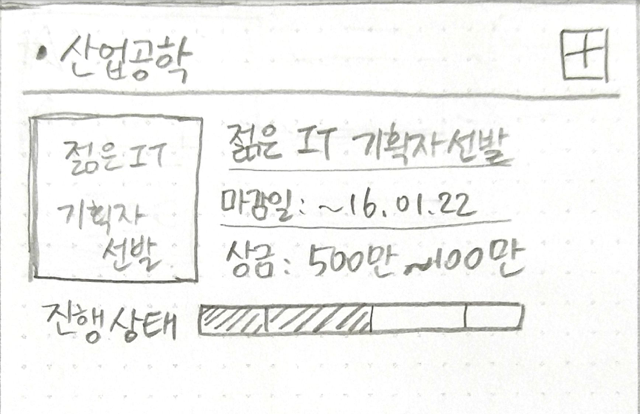 • 산업공학
젊은 IT
기획자
선발
젊은 IT 기획자선발
마감일: ~16.01.22
상금: 500만~100만
진행상태